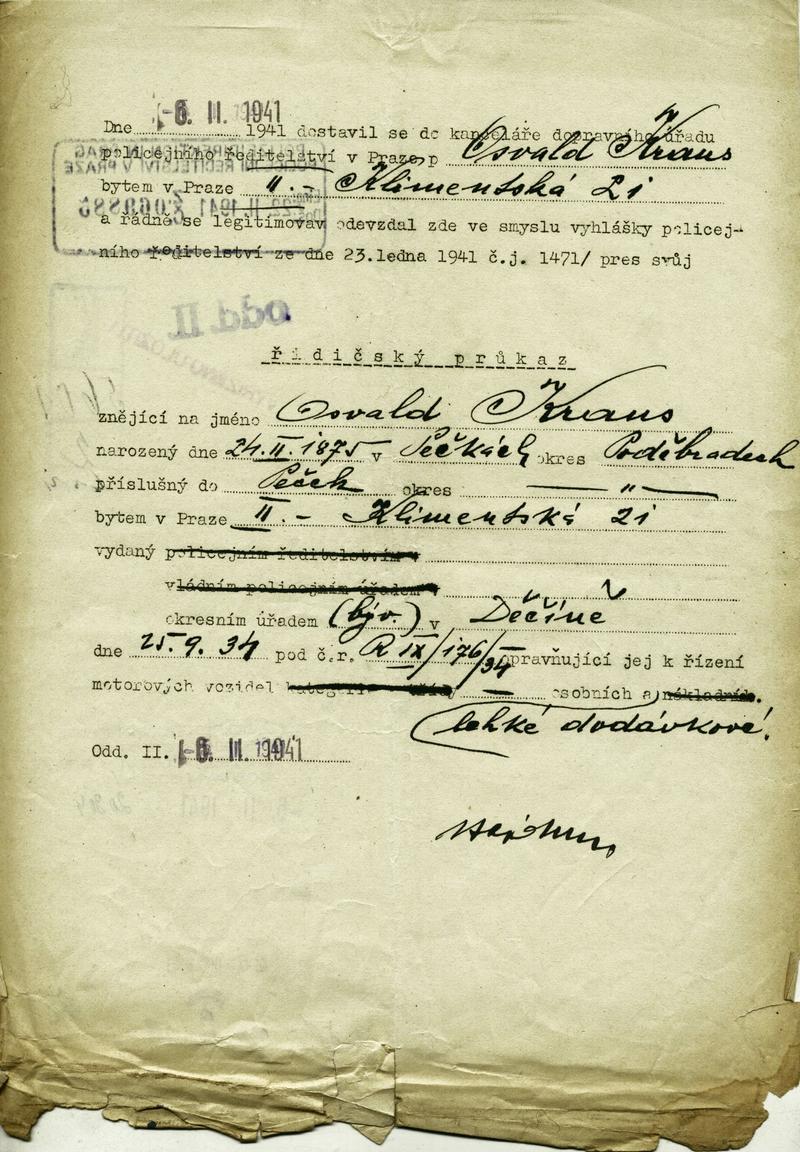 -6. II. 1941
Dne 1941 dostavil se do kanceláře dopravního úřadu
policejního ředitelství v Praze p Osvald Kraus
bytem v Praze II.- Klimentská 21
a řádně se legitimovav odevzdal zde ve smyslu vyhlášky policej-
ního ředitelství ze dne 23.ledna 1941 č.j. 1471/ pres svůj
odd. II
řidičský průkaz
znějící na jméno Osvald Kraus
narozený dne 24.II.1875 v Pečkách okres Poděbradech
příslušný do Peček okres — " —
bytem v Praze II.- Klimentská 21
vydaný policejním ředitelstvím v
vládním policejním úřadem v
okresním úřadem (býv.) v Děčíně
dne 25.9.34 pod č.r. R IX/176/34 opravňující jej k řízení
motorových vozidel kategorie třídy — osobních a nákladních.
(lehké dodávkové.
Odd. II. -6. II. 1941